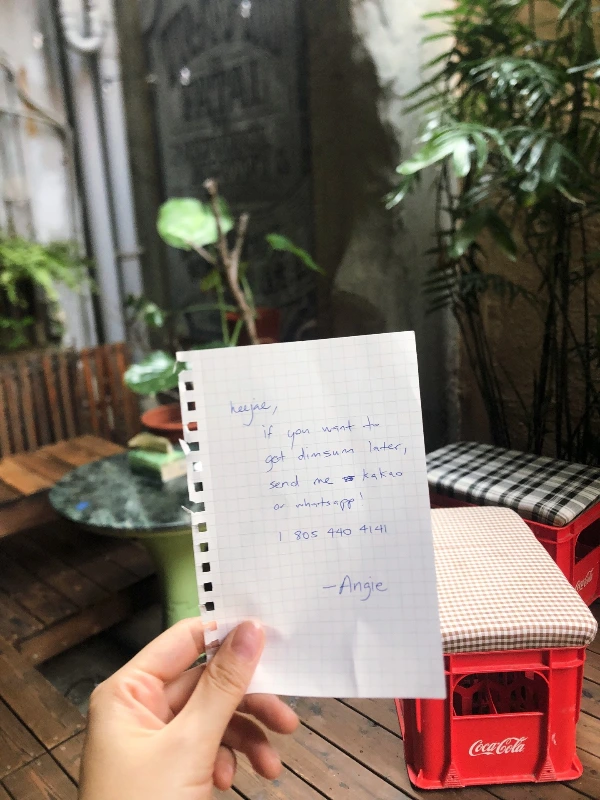 heejae,
if you want to
get dimsum later,
send me kakao
or whatsapp!
1 805 440 4141
—Angie
Coca-Cola